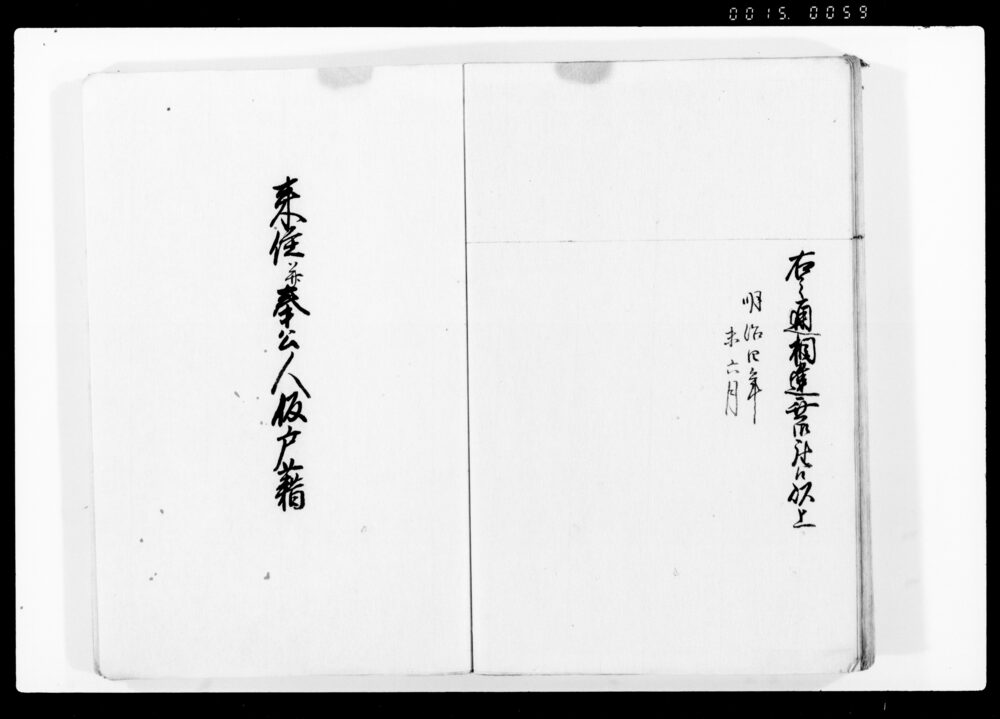 0015. 0059
右之通相違無御座候以上
明治四年
未六月
来住并奉公人仮戸籍